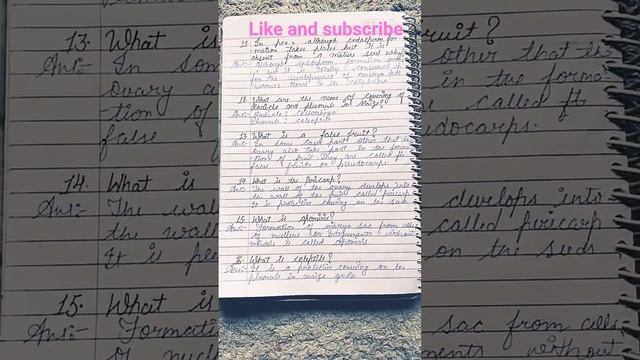 Like and subscribe
11. In pea, although endosperm for-
mation takes places but it is
absent from a mature seed why?
Ans:- Although endosperm formation
but it is totally consumed
for the development of embryo
becomes stored in its cotyledons
12. What are the name of covering of
Radicle and plumule of Maize?
Ans:- Radicle: coleorhiza
Plumule: coleoptile
13. What is a false fruit?
Ans:- In some case part other that the
ovary also take part in the forma-
tion of fruit. They are called ft
false fruits or pseudocarps.
14. What is the Pericarp?
Ans:- The wall of the ovary develops into
the wall of the called pericarp
It is protective covering on the seeds
15. What is apomixie?
Ans:- Formation of embryo sac from cells
of nucellus or integuments without
meiosis is called apomixis
16. What is coleoptile?
Ans:- It is a protective covering on the
plumule in maize grain
13. What is
Ans:- In som
ovary a
tion of
false
14. What is
Ans:- The wall
the wall
It is p
15. What is
Ans:- Formati
of nucl
ruit?
other that the
in the forma-
called ft
udocarps.
develops into
called pericarp
on the seeds
sac from cells
ments without